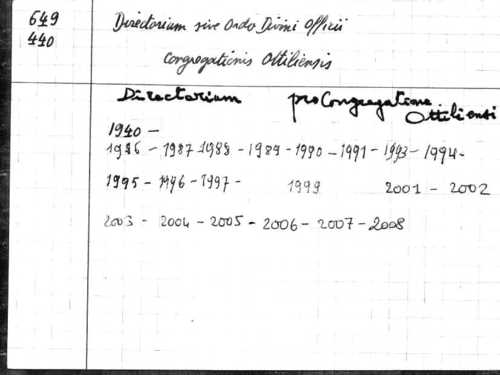 649
440
Directorium sive Ordo Divini Officii
Congregationis Ottiliensis
Directorium pro Congregatione
Ottiliensi
1940 -
1986 - 1987 - 1988 - 1989 - 1990 - 1991 - 1993 - 1994 -
1995 - 1996 - 1997 - 1999 2001 - 2002
2003 - 2004 - 2005 - 2006 - 2007 - 2008